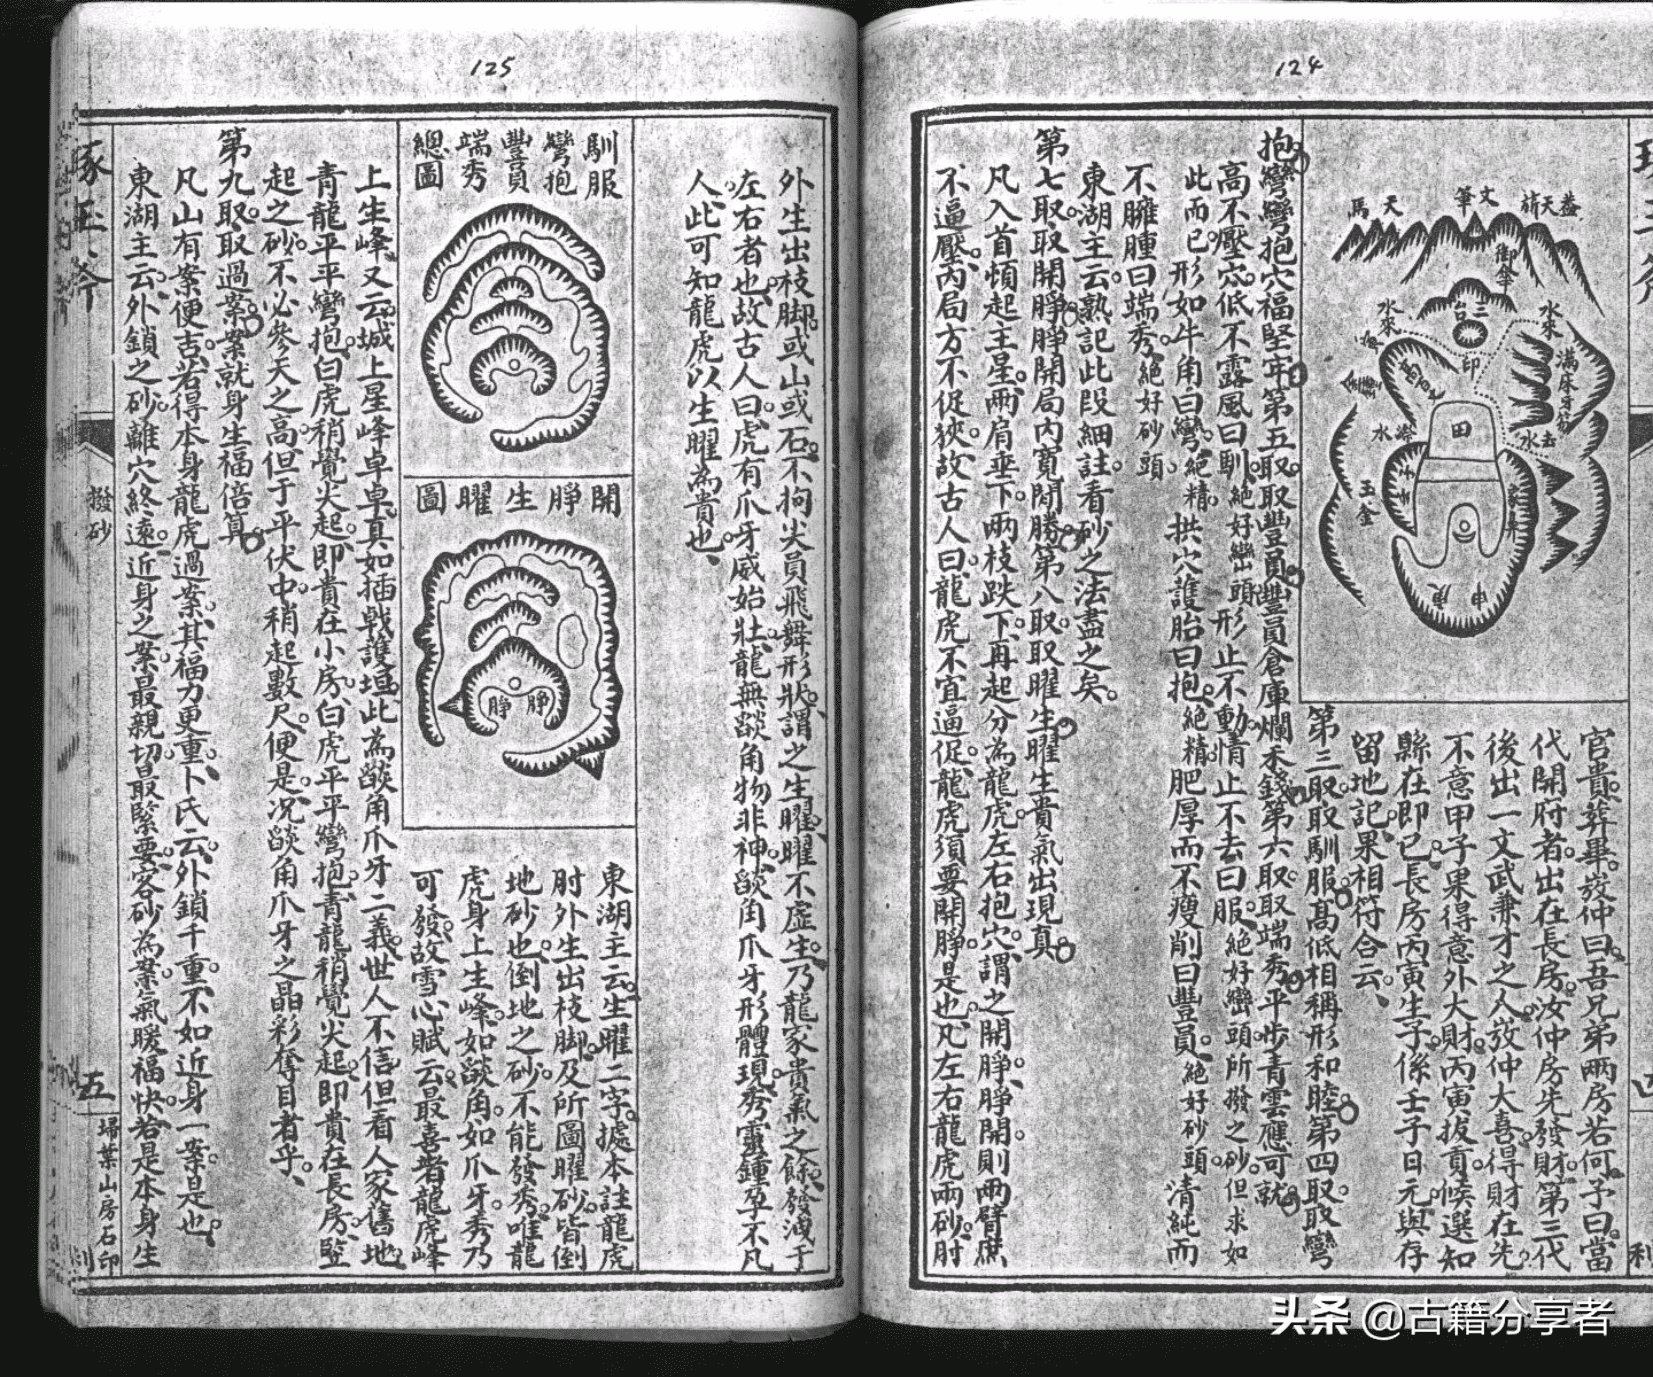 124
天馬
文筆
蓋天旂
御傘
三台
水來
水來
印
滿床牙笏
去水
田
玉金
官貴葬畢。茇仲曰吾兄弟兩房若何。予曰當
代開府者出在長房。汝仲房先發財。第三代
後出一文武兼才之人。茇仲大喜。得財在先。
不意甲子果得意外大財。丙寅拔貢。候選知
縣在即。已長房丙寅生子。係壬子日元。與存
留地記。果相符合云、
第三取。取馴服。高低相稱形和睦。第四取。取彎
抱。彎彎抱穴福堅牢。第五取。取豐員。豐員倉庫爛禾錢。第六取。取端秀。平步青雲應可就。
高不壓穴。低不露風曰馴。絕好巒頭 形止不動。情止不去曰服。絕好巒頭所撥之砂但求如
此而已 形如牛角曰彎。絕精。 拱穴護胎曰抱。絕精 肥厚而不瘦削曰豐員。絕好砂頭 清純而
不臃腫曰端秀。絕好砂頭
東湖主云。熟記此段細註。看砂之法盡之矣。
第七取。取開睜。睜開局內寬閒勝。第八取。取曜生。曜生貴氣出現真。
凡入首頓起主星。兩肩垂下。兩枝跌下。再起分為龍虎。左右抱穴。謂之開睜。睜開則兩臂庶
不逼壓。內局方不促狹。故古人曰。龍虎不宜逼促。龍虎須要開睜是也。凡左右龍虎兩砂。肘
125
外生出枝脚。或山或石。不拘尖員飛舞形狀。謂之生曜。曜不虛生。乃龍家貴氣之餘。發洩于
左右者也。故古人曰。虎有爪牙威始壯。龍無燄角物非神。燄角爪牙形體現。秀靈鍾孕不凡
人。此可知龍虎以生曜為貴也、
馴服
彎抱
豐員
端秀
總圖
開睜生曜圖
睜
睜
東湖主云。生曜二字。據本註龍虎
肘外生出枝脚及所圖曜砂。皆倒
地砂也。倒地之砂。不能發秀。唯龍
虎身上生峰。如燄角。如爪牙。秀乃
可發。故雪心賦云。最喜者龍虎峰
上生峰。又云。城上星峰卓卓。真如插戟護垣。此為燄角爪牙二義。世人不信。但看人家舊地。
青龍平平彎抱。白虎稍覺尖起。即貴在小房。白虎平平彎抱。青龍稍覺尖起。即貴在長房。豎
起之砂。不必參天之高。但于平伏中。稍起數尺。便是。况燄角爪牙之晶彩奪目者乎。
第九取。取過案。案就身生福倍算。
凡山有案便吉。若得本身龍虎過案。其福力更重。卜氏云。外鎖千重。不如近身一案。是也。
東湖主云。外鎖之砂。離穴終遠。近身之案。最親切。最緊要。客砂為案。氣暖福快。若是本身生
撥砂
五
掃葉山房石印
头条 @古籍分享者